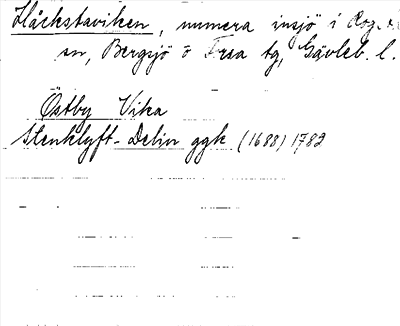 Håckstaviken, numera insjö i Rog. s
sn, Bergsjö o Forsa tg, Gävleb. l.
Östby Vika
Stenklyft-Delin ggk. (1688) 1782